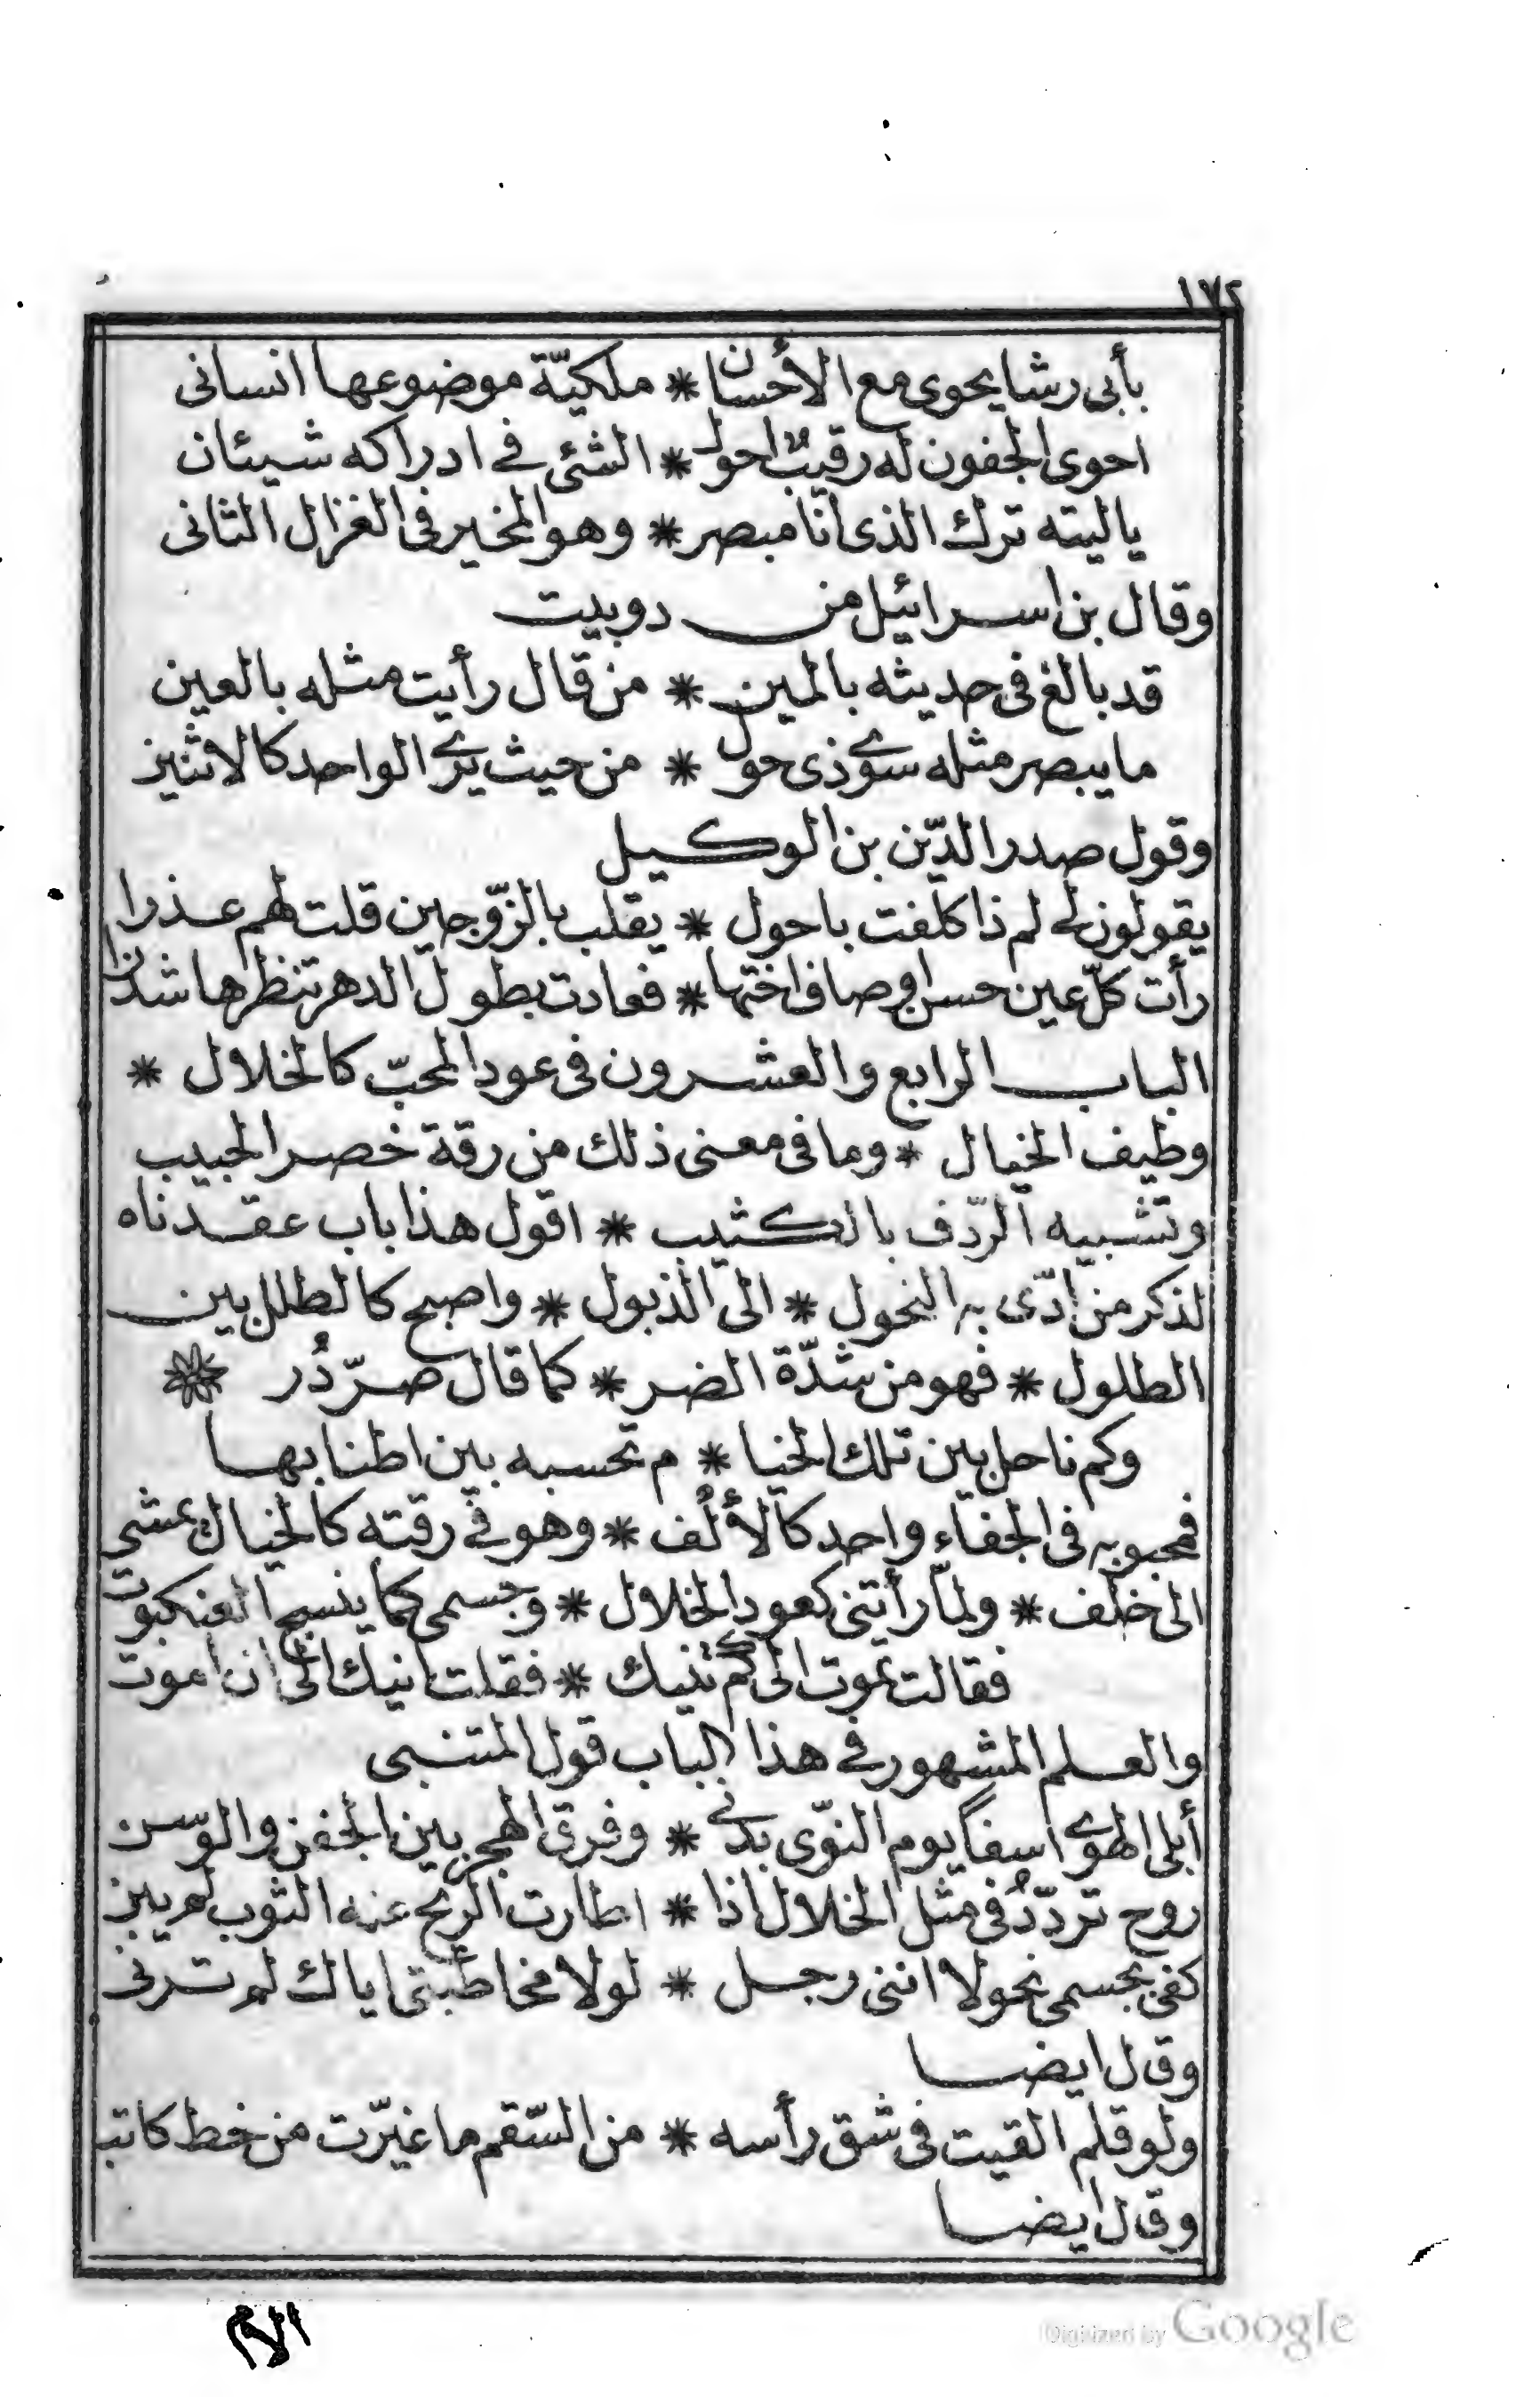 ١٧٢
بأبى رشا يحوى مع الأحسان * ملكيّة موضوعها انسانى
احوى الجفون له رقيب احول * الشئ فے ادراكه شيئان
ياليته ترك الذى انا مبصر * وهو المخير فى الغزال الثانى
وقال بن اسرائيل من دوبيت
قد بالغ فى حديثه بالمين * من قال رأيت مثله بالعين
ما يبصر مثله سوے ذى حول * من حيث يرے الواحد كالاثنين
وقول صدر الدّين بن الوكيل
يقولون لے لم ذا كلفت باحول * يقلب بالزوجين قلت لهم عذرا
رأت كلّ عين حسن اوصاف اختها * فعادت بطول الدهر تنظرها شذرا
الباب الرابع والعشرون فى عود المحبّ كالخلال *
وطيف الخيال * وما فى معنى ذلك من رقة خصر الحبيب
وتشبيه الرّدف بالكثيب * اقول هذا باب عقدناه
لذكر من ادّى به النحول * الى الذبول * واصبح كالطلل بين
الطلول * فهو من شدّة الضر * كما قال صرّدُر *
وكم ناحل بين تلك الخيا * م تحسبه بين اطنابها
فمحبوبه فى الجفاء واحد كالألُف * وهو فے رقته كالخيال يمشى
الى خلف * ولمّا رأتنى كعود الخلال * وجسمى كما ينسج العنكبوت
فقالت تموت الى كم تنيك * فقلت انيك الى ان اموت
والعلم المشهور فے هذا الباب قول المتنبى
أبلى الهوے اسفاً يوم النوّى بدنے * وفرق الهجر بين الجفن والوسن
روح تردّدُ فى مثل الخلال اذا * اطارت الريح عنه الثوب لم يبن
كفى بجسمى نحولا اننى رجل * لولا مخاطبتى اياك لم ترنى
وقال ايضا
ولو قلم القيت فى شق رأسه * من السّقم ما غيّرت من خط كاتب
وقال ايضا
الام
Digitized by Google